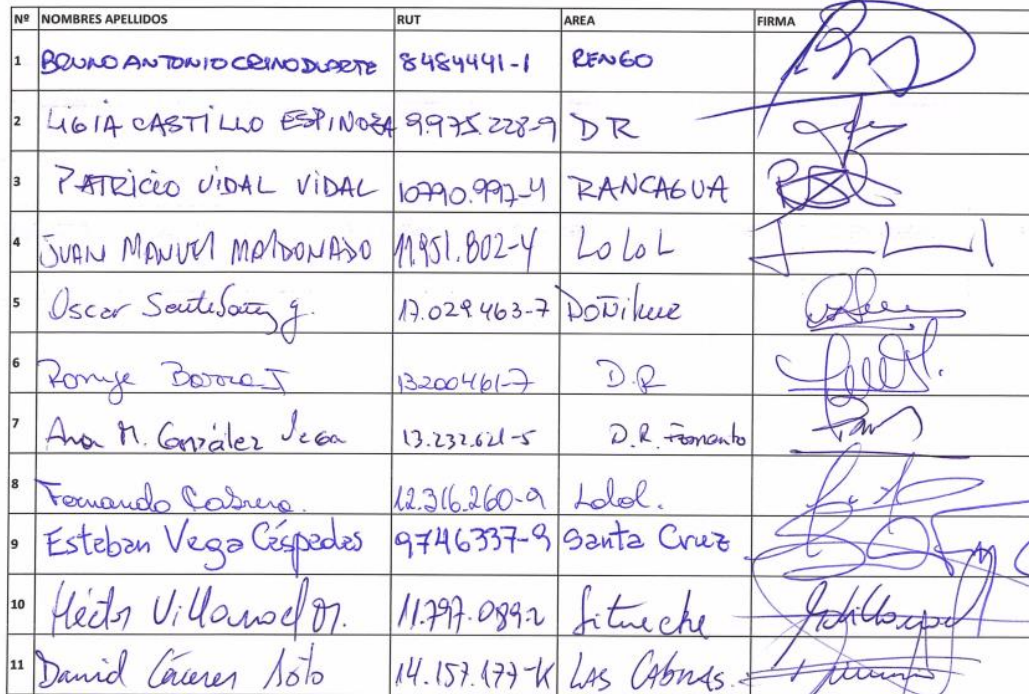 Nº NOMBRES APELLIDOS RUT AREA FIRMA
1 BRUNO ANTONIO CRINO DUARTE 8484441-1 RENGO
2 LIGIA CASTILLO ESPINOZA 9.975.228-9 DR
3 PATRICIO VIDAL VIDAL 10790.997-4 RANCAGUA
4 JUAN MANUEL MALDONADO 11.951.802-4 LoLoL
5 Oscar 17.029.463-7 Doñihue
6 13200461-7 D.R
7 Ana M. González Vega 13.232.621-5 D.R. Fomento
8 Fernando Cabrera. 12.316.260-9 Lolol.
9 Esteban Vega Céspedes 9746337-9 Santa Cruz
10 Héctor 11.797.089-2 Litueche
11 David Cáceres Soto 14.157.177-K LAS CABRAS.